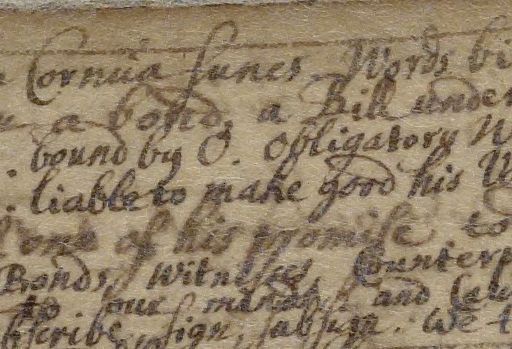 Cornua funes Words bi
a bond, a Bill under
bound by O. Obligatory W
: liable to make good his W
one of his promise to
Bonds, Witnesses Counterp
to our minds, and
bscribe, sign, subsign. We